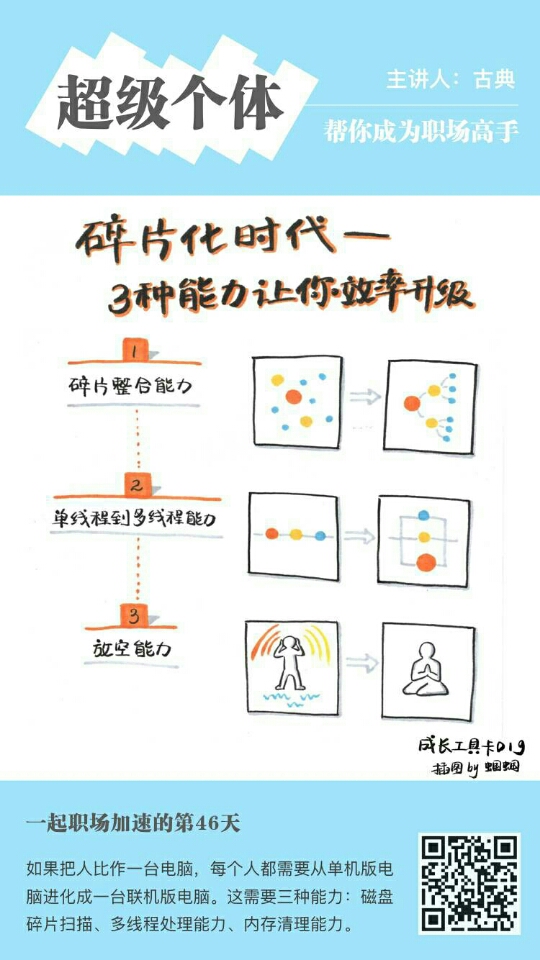 超级个体
主讲人：古典
帮你成为职场高手
碎片化时代—
3种能力让你·效率升级
1
碎片整合能力
2
单线程到多线程能力
3
放空能力
成长工具卡019
插图by 蝈蝈
一起职场加速的第46天
如果把人比作一台电脑，每个人都需要从单机版电
脑进化成一台联机版电脑。这需要三种能力：磁盘
碎片扫描、多线程处理能力、内存清理能力。